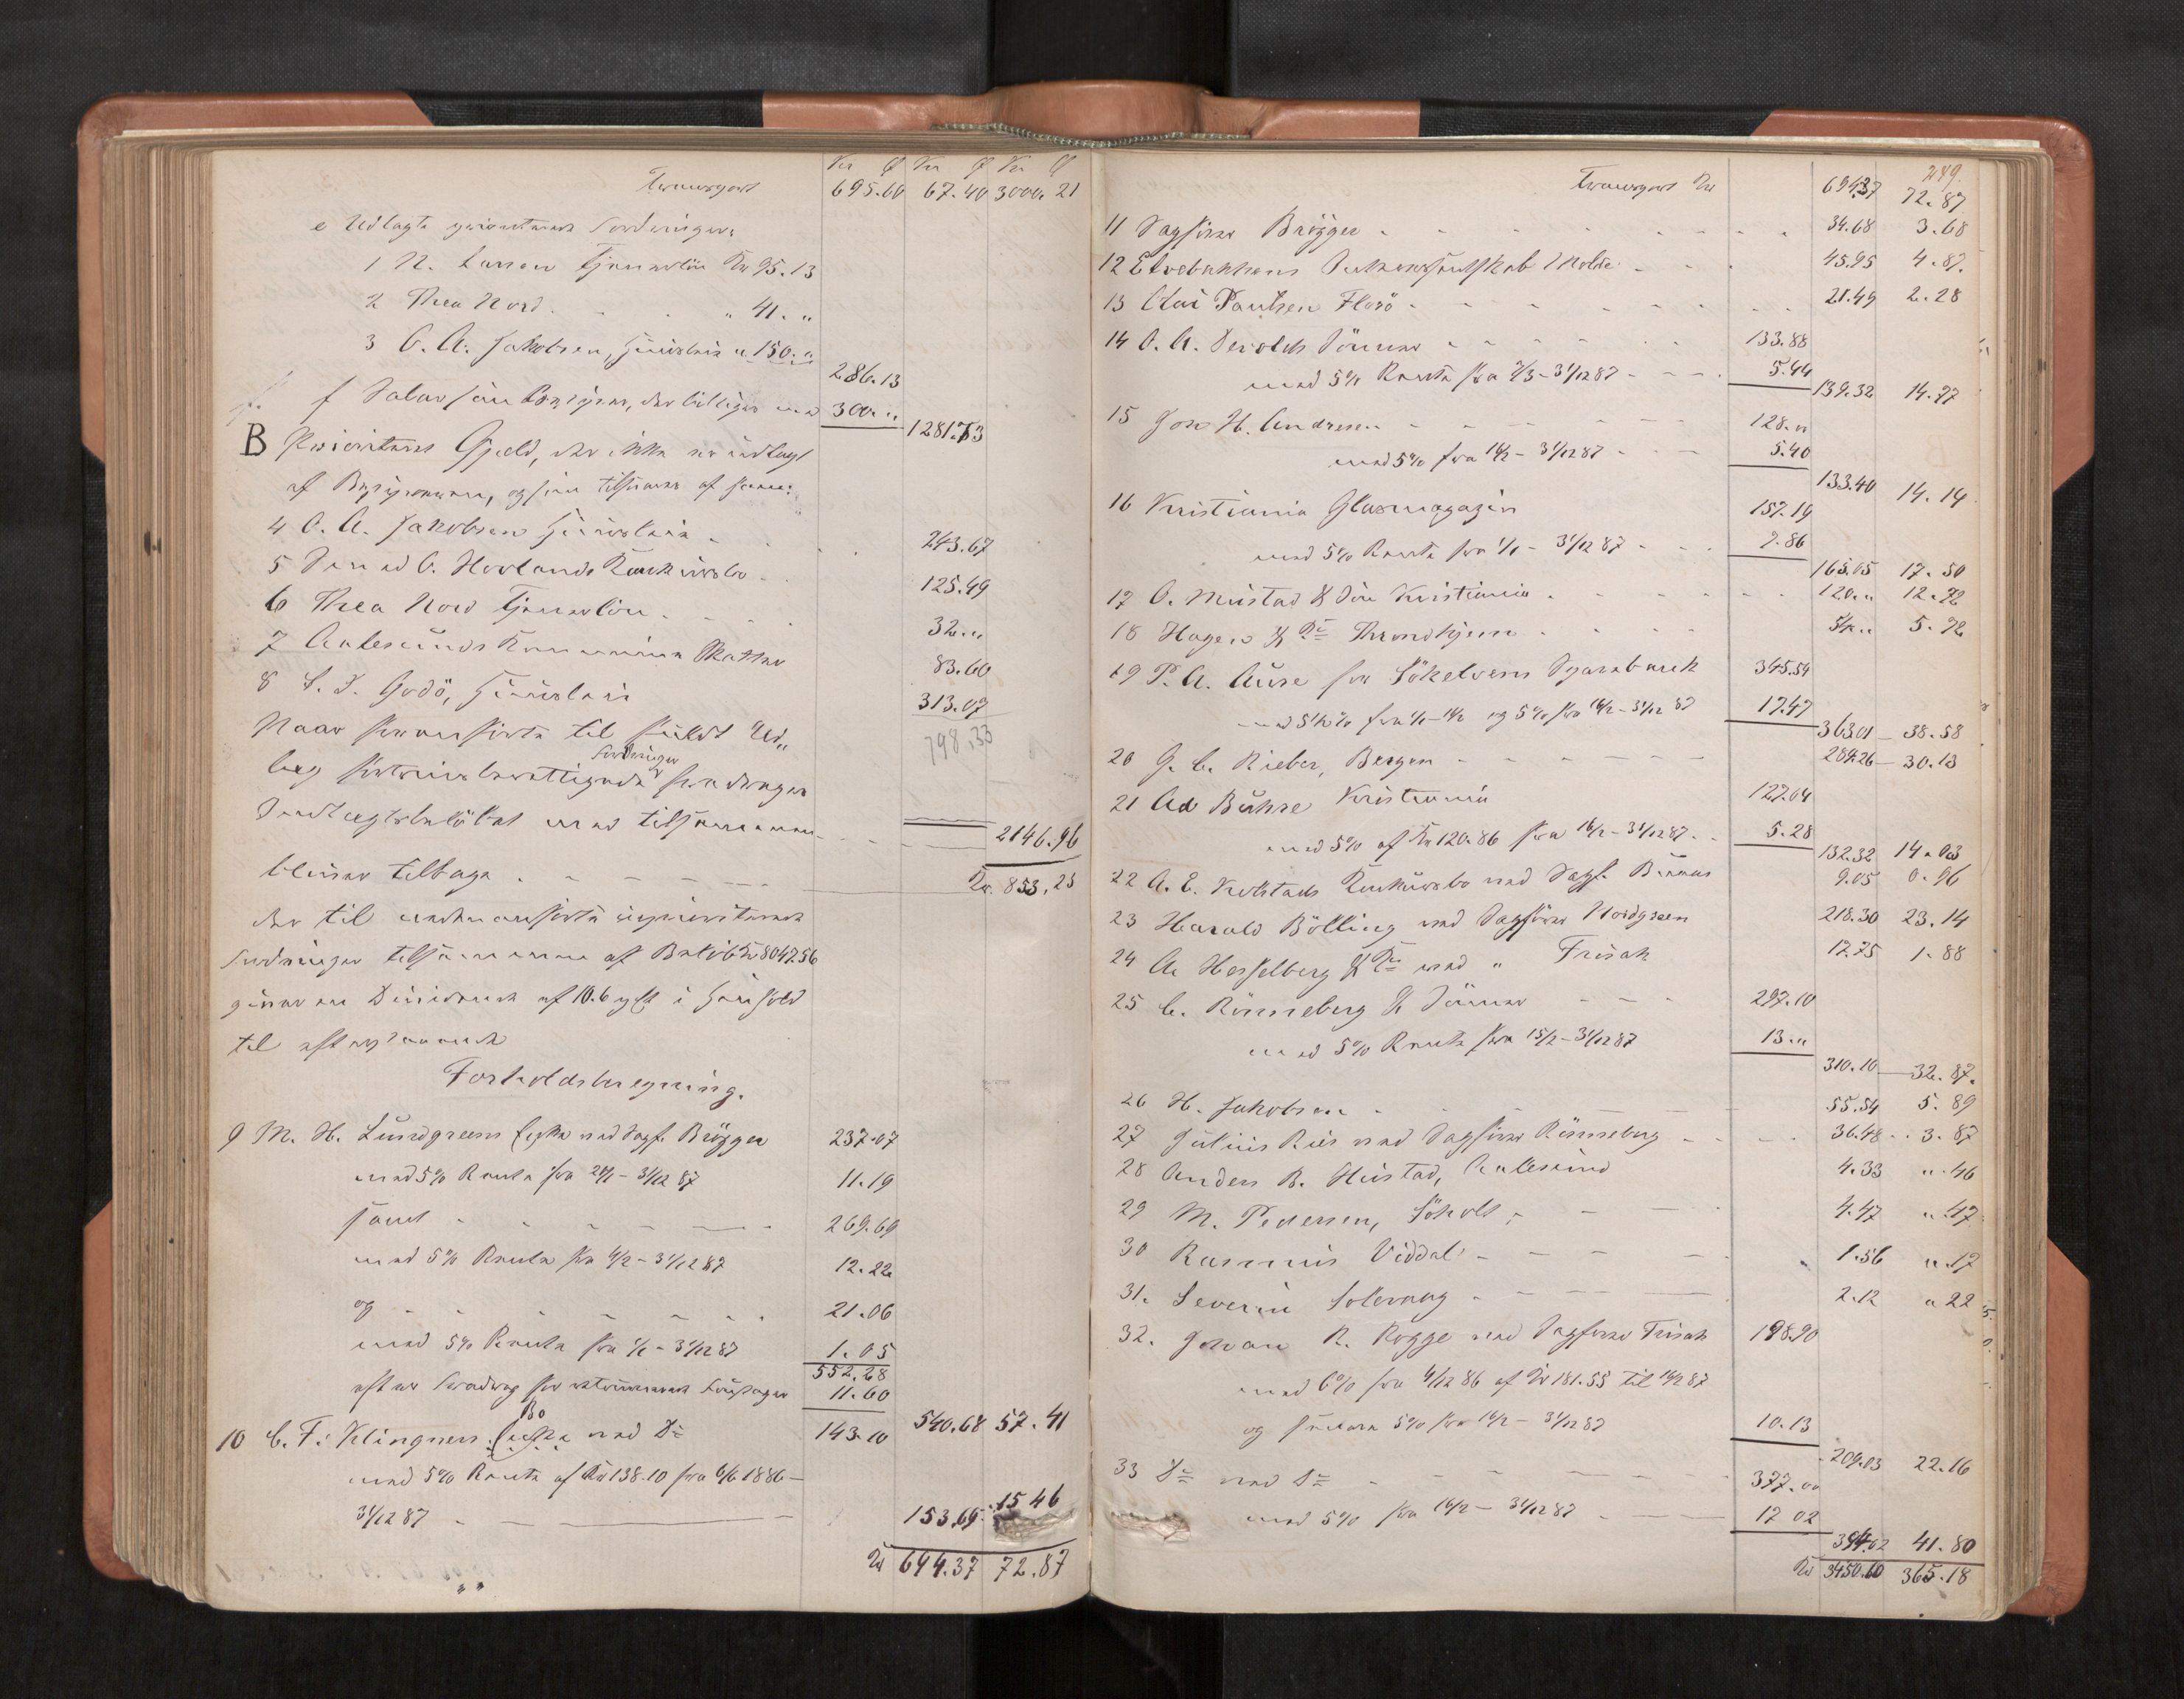 Kr Ø Kr Ø Kr Ø
Transport 695.60 67.40 3000.21
e Udlagte prioriterede Fordringer:
1 N. Larsen Tjenerløn Kr 95.13
2 Thea Nord . . . " 41. "
3 O. A. Jakobsen, Huusleie " 150. "
286.13
f Salær sun Bestyrer, der billiges med 300. "
1281.73
B Prioriteret Gjæld, der ikke er indtagt
af Bestyreren, og sin tilsvarer af samme:
4 O. A. Jakobsen Huusleie . . . 243.67
5 Sam ed O. Hovlands Konkursbo . . 125.49
6 Thea Nord Tjenerløn . . . . 32. "
7 Aalesunds Kommune Skatter 83.60
8 S. J. Godö, Huusleie 313.07
798.33
Naar foranførte til fuldt Ud-
læg fortrinsberettigede Fordringer fradrages
Indtægtsbeløbet med tilsammen - - - 2146.96
bliver tilbage . - - - Kr. 853.25
der til nedenanførte uprioriterede
Fordringer tilsammen af Beløb Kr 8047.56
giver en Dividende af 10.6 pCt i Henhold
til efterstaaende
Forholdsberegning.
9 M. H. Lundgreens Enke ved Sagf. Brögger 237.07
med 5% Rente fra 21/1 - 31/12 87 11.19
samt - - - 269.69
med 5% Rente fra 4/2 - 31/12 87 12.22
og - - - 21.06
med 5% Rente fra 1/1 - 31/12 87 1.05
552.28
efter Fradrag for 11.60
540.68 57.41
10 C. F. Klingners Bo ved Do 143.10
med 5% Rente af Kr 138.10 fra 6/6 1886 -
31/12 87 - - - 153.69 15 46
Kr 694.37 72.87
249.
Transport Kr 694.37 72.87
11 Sagfører Brögger - - - 34.68 3.68
12 Molde - - 45.95 4.87.
13 Olai Paulsen Florö - - - 21.49 2.28
14 O. A. Devolds Sönner - - - 133.88
med 5% Rente fra 2/3 - 31/12 87 - - - 5.44
139.32 14.77
15 Joh H. Andresen - - - 128. "
med 5% fra 16/2 - 31/12 87 - - 5.40
133.40 14.14
16 Kristiania Glasmagazin 157.19
med 5% Rente fra 1/1 - 31/12 87 - - 7.86
165.05 17.50
17 O. Mustad & Sön Kristiania - - - 120. " 12.72
18 Hagen & Co Throndhjem - - - 54. " 5.72
19 P. A. Aure for Sökelvens Sparebank 345.54
med 5½% fra 1/1 - 16/2 og 5% fra 16/2 - 31/12 87 17.47
363.01 38.58
20 G. C. Rieber, Bergen - - - 284.26 30.13
21 Ad Bühre Kristiania 127.04
med 5% af Kr 120.86 fra 16/2 - 31/12 87 - - 5.28
132.32 14.03
22 A. E. Kolstads Konkursbo ved Sagf. 9.05 0.96
23 Harald Bölling ved Sagfører Nordgreen 218.30 23.14
24 A Hesselberg & Co ved " Frisak 17.75 1.88
25 C. Rönneberg & Sönner - - - 297.10
med 5% Rente fra 15/2 - 31/12 87 13. "
310.10 32.87.
26 H. Jakobsen - - - 55.54 5.89
27 Julius Ries ved Sagfører Rönneberg - - - 36.48 3.87
28 Anders B. Hustad, Aalesund 4.33 " .46
29 M. Pedersen, Söholt - - - 4.47 " .47
30 Rasmus Viddal - - - 1.56 " .17
31. Severin Solevaag - - - 2.12 " 22
32. Johan R. Rogge ved Sagfører Frisak 198.90
med 6% fra 4/12 86 af Kr 181.55 til 16/2 87
og siden 5% fra 16/2 - 31/12 87 10.13
209.03 22.16
33 Do ved Do - - - 377.00
med 5% fra 16/2 - 31/12 87 - - 17 02
394.02 41.80
Kr 3450.60 365.18